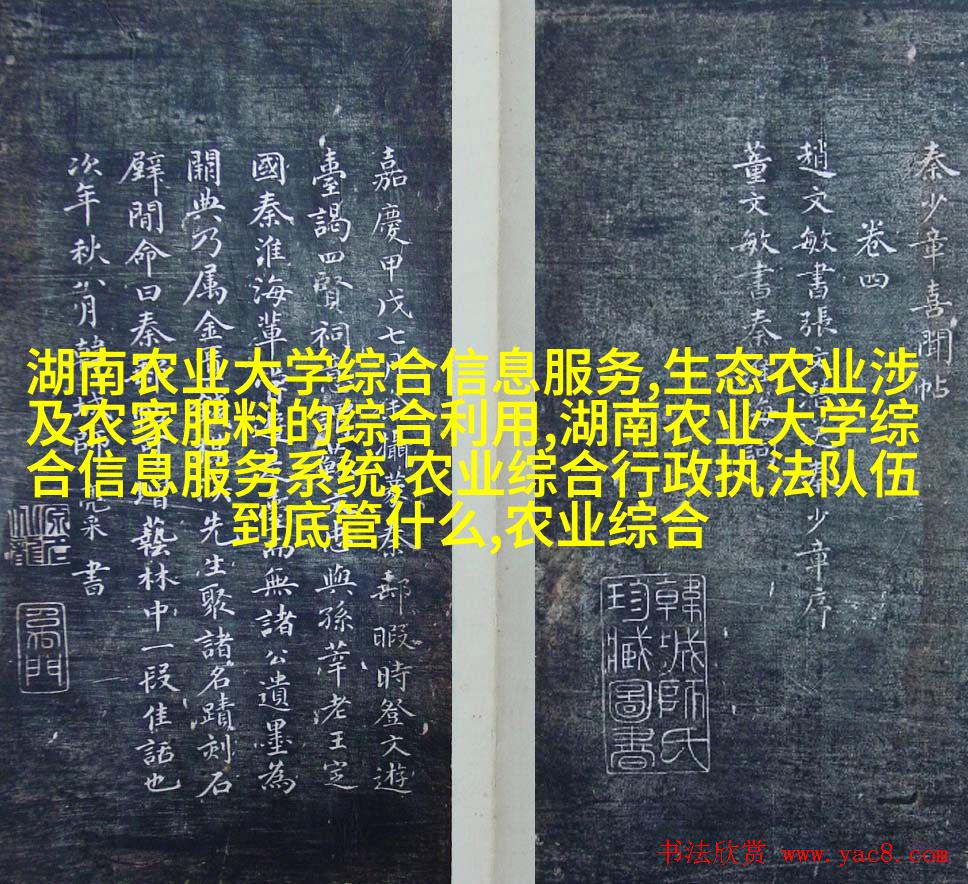 湖南农业大学综合信息服务,生态农业涉
及农家肥料的综合利用,湖南农业大学综
合信息服务系统,农业综合行政执法队伍
到底管什么,农业综合
秦少章喜聞帖
卷四
趙文敏書張文少章序
董文敏書秦
韓城師氏
珍臧圖書
嘉慶甲戌七月攝篆秦郵暇時登文遊
臺謁四賢祠與孫莘老王定
國秦淮海輩無諸公遺墨為
闕典乃属金先生聚諸名蹟刻石
壁間命曰秦藝林中一段佳話也
次年秋八月韓城師亮采書
书法欣赏 www.yac8.com